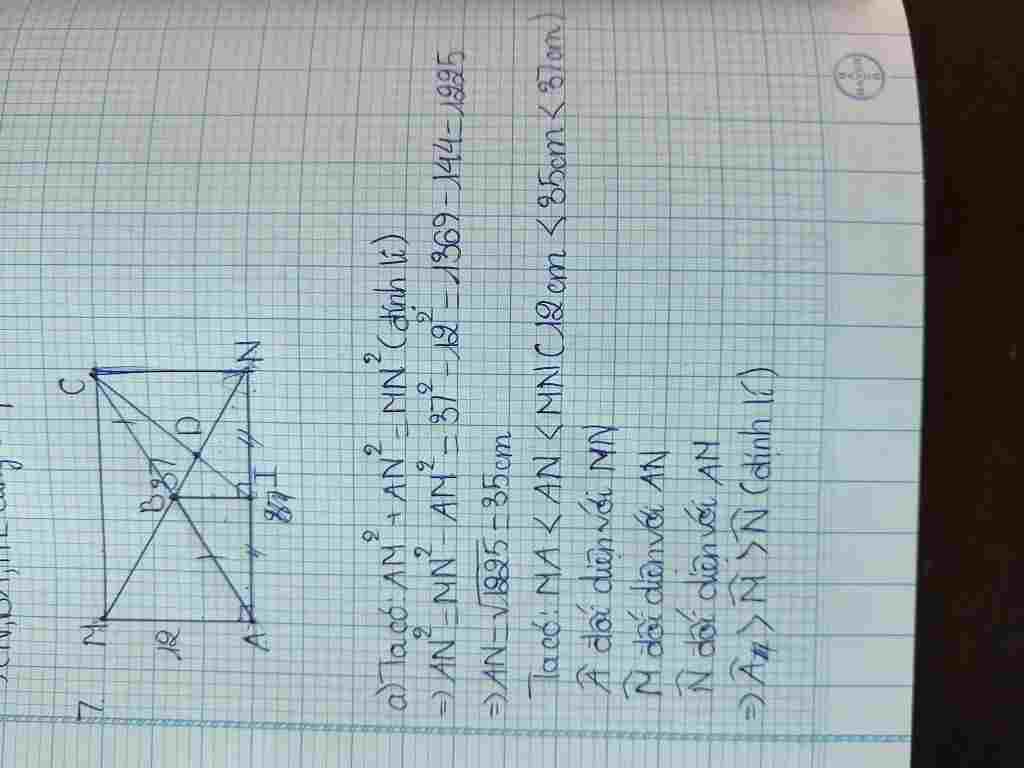 7.
M
C
12
B
37
D
A
I
N
a) Ta có: AM² + AN² = MN² (định lí)
=) AN² = MN² - AM² = 37² - 12² = 1369 - 144 = 1225
=) AN = √1225 = 35cm
Ta có: MA < AN < MN (12cm < 35cm < 37cm)
Â đối diện với MN
M̂ đối diện với AN
N̂ đối diện với AM
=) Â > M̂ > N̂ (định lí)
BAYER